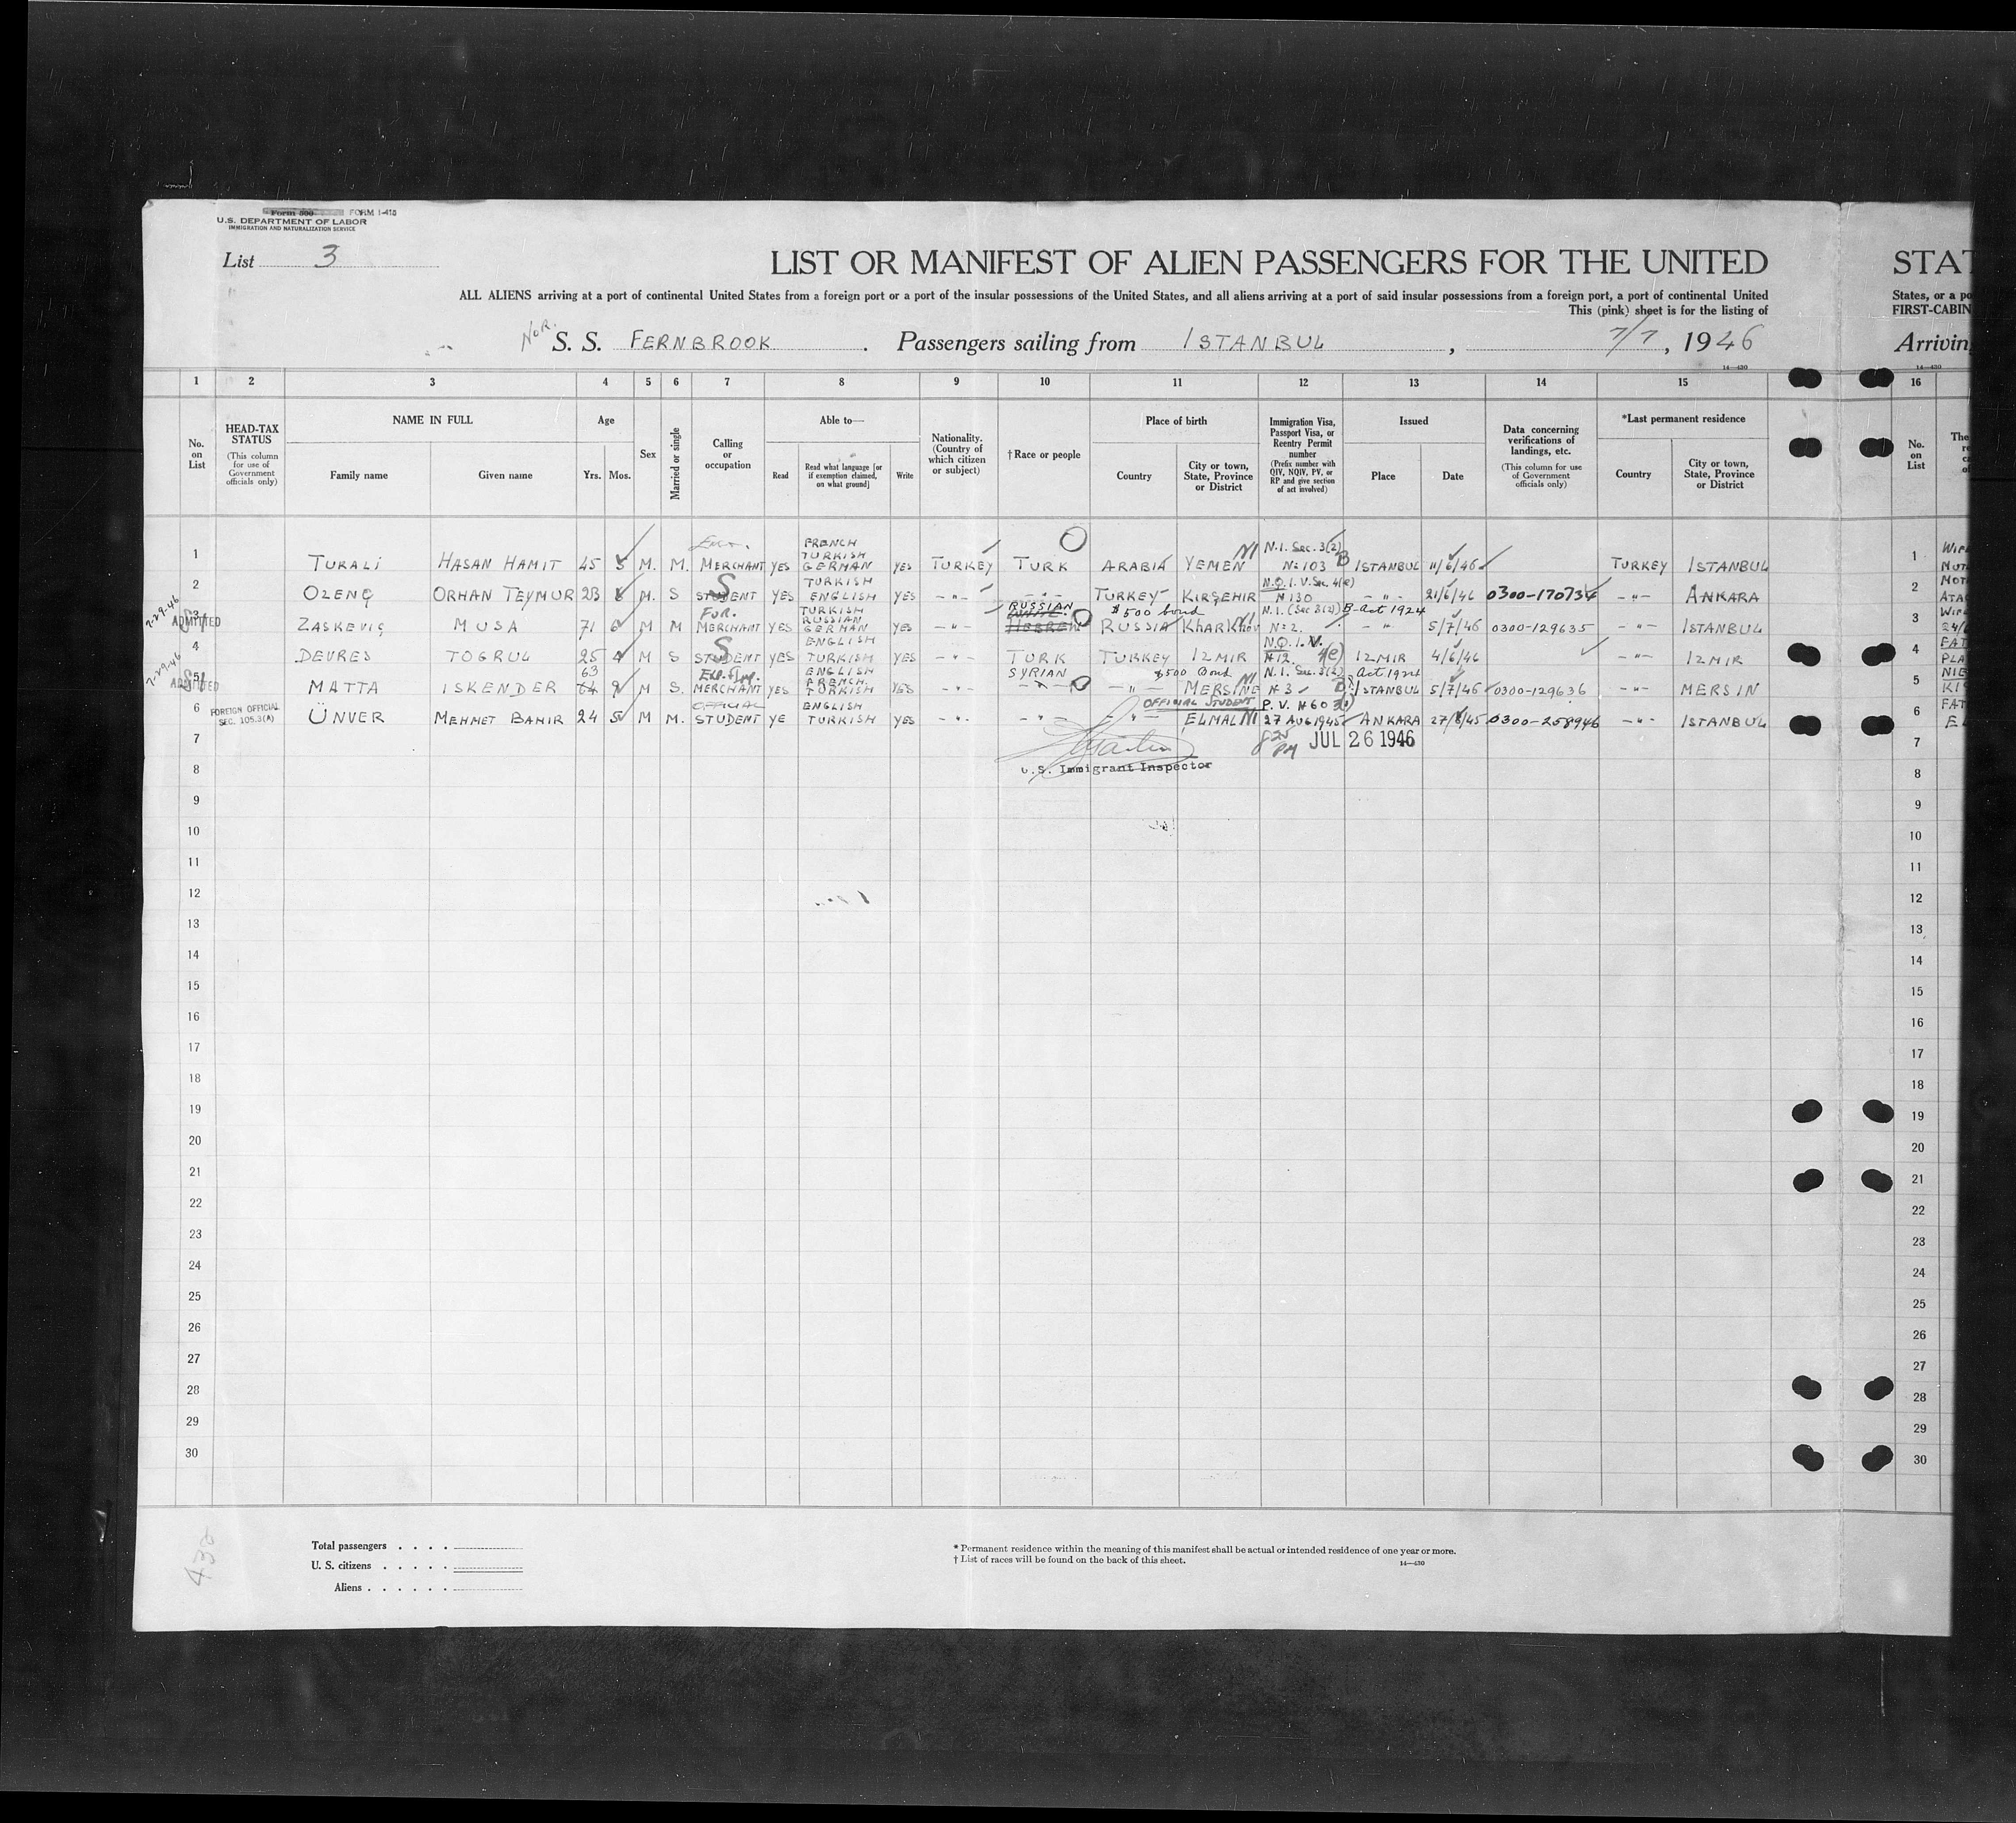 Form 500 FORM I-415
U.S. DEPARTMENT OF LABOR
IMMIGRATION AND NATURALIZATION SERVICE
List 3
LIST OR MANIFEST OF ALIEN PASSENGERS FOR THE UNITED
STAT
ALL ALIENS arriving at a port of continental United States from a foreign port or a port of the insular possessions of the United States, and all aliens arriving at a port of said insular possessions from a foreign port, a port of continental United
States, or a po
This (pink) sheet is for the listing of
FIRST-CABIN
Nor. S. S. FERNBROOK. Passengers sailing from ISTANBUL, 7/7, 1946
Arrivin
14—430
14—430
1 2 3 4 5 6 7 8 9 10 11 12 13 14 15 16
No. on List
HEAD-TAX STATUS
(This column for use of Government officials only)
NAME IN FULL
Family name Given name
Age
Yrs. Mos.
Sex
Married or single
Calling or occupation
Able to—
Read
Read what language [or if exemption claimed, on what ground]
Write
Nationality. (Country of which citizen or subject)
†Race or people
Place of birth
Country
City or town, State, Province or District
Immigration Visa, Passport Visa, or Reentry Permit number
(Prefix number with QIV, NQIV, PV, or RP and give section of act involved)
Issued
Place Date
Data concerning verifications of landings, etc.
(This column for use of Government officials only)
*Last permanent residence
Country
City or town, State, Province or District
No. on List
1 TURALI HASAN HAMIT 45 5 M. M. MERCHANT YES FRENCH TURKISH GERMAN YES TURKEY TURK ARABIA YEMEN NI N.I. Sec. 3(2) B No 103 ISTANBUL 11/6/46 TURKEY ISTANBUL
2 OZENÇ ORHAN TEYMUR 23 8 M. S S STUDENT YES TURKISH ENGLISH YES -"- -"- TURKEY KIRŞEHIR N.Q.I.V. Sec. 4(e) # 130 -"- 21/6/46 0300-170734 -"- ANKARA
7-29-46 ADMITTED
3 ZASKEVIÇ MUSA 71 6 M M For. MERCHANT YES TURKISH RUSSIAN GERMAN YES -"- RUSSIAN HEBREW $500 bond RUSSIA KharKhov NI N.I. (Sec 3(2)) B-Act 1924 No 2. -"- 5/7/46 0300-129635 -"- ISTANBUL
4 DEVRES TOGRUL 25 4 M S S STUDENT YES ENGLISH TURKISH YES -"- TURK TURKEY IZMIR N.Q.I.V. #12 4(e) IZMIR 4/6/46 -"- IZMIR
7-29-46 ADMITTED
5 MATTA ISKENDER 63 64 9 M S. MERCHANT YES ENGLISH FRENCH TURKISH YES -"- SYRIAN -"- $500 Bond MERSINE NI N.I. Sec. 3(2) B Act 1924 # 3 ISTANBUL 5/7/46 0300-129636 -"- MERSIN
6 FOREIGN OFFICIAL SEC. 105.3(A) ÜNVER MEHMET BAHIR 24 5 M M. OFFICIAL STUDENT YE ENGLISH TURKISH YES -"- -"- -"- OFFICIAL STUDENT ELMALI NI P. V. #60 3(1) 27 AUG 1945 ANKARA 27/8/45 0300-258946 -"- ISTANBUL
7 825 PM JUL 26 1946
8 U.S. Immigrant Inspector
9
10
11
12
13
14
15
16
17
18
19
20
21
22
23
24
25
26
27
28
29
30
1
2
3
4
5
6
7
8
9
10
11
12
13
14
15
16
17
18
19
20
21
22
23
24
25
26
27
28
29
30
430
Total passengers . . . .
U. S. citizens . . . . .
Aliens . . . . . .
* Permanent residence within the meaning of this manifest shall be actual or intended residence of one year or more.
† List of races will be found on the back of this sheet.
14—430